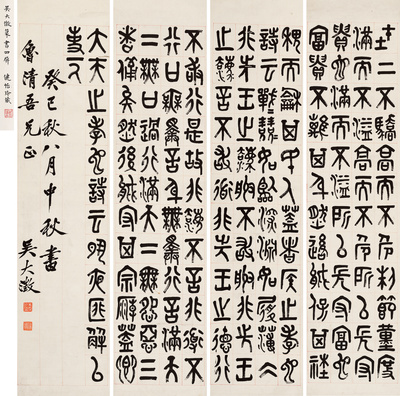 在上不驕高而不危制節謹度
滿而不溢高而不危所以長守
貴也滿而不溢所以長守富也
富貴不離其身然後能保其社
稷而和其民人蓋諸侯之孝也
詩云戰戰兢兢如臨深淵如履薄冰
非先王之法服不敢服非先王
之法言不敢道非先王之德行
不敢行是故非法不言非道不
行口無擇言身無擇行言滿天
下無口過行滿天下無怨惡三
者備矣然後能守其宗廟蓋卿
大夫之孝也詩云夙夜匪懈以
事一人
癸巳秋八月中秋書
魯清吾兄正
吳大澂
吳大澂篆書四屏